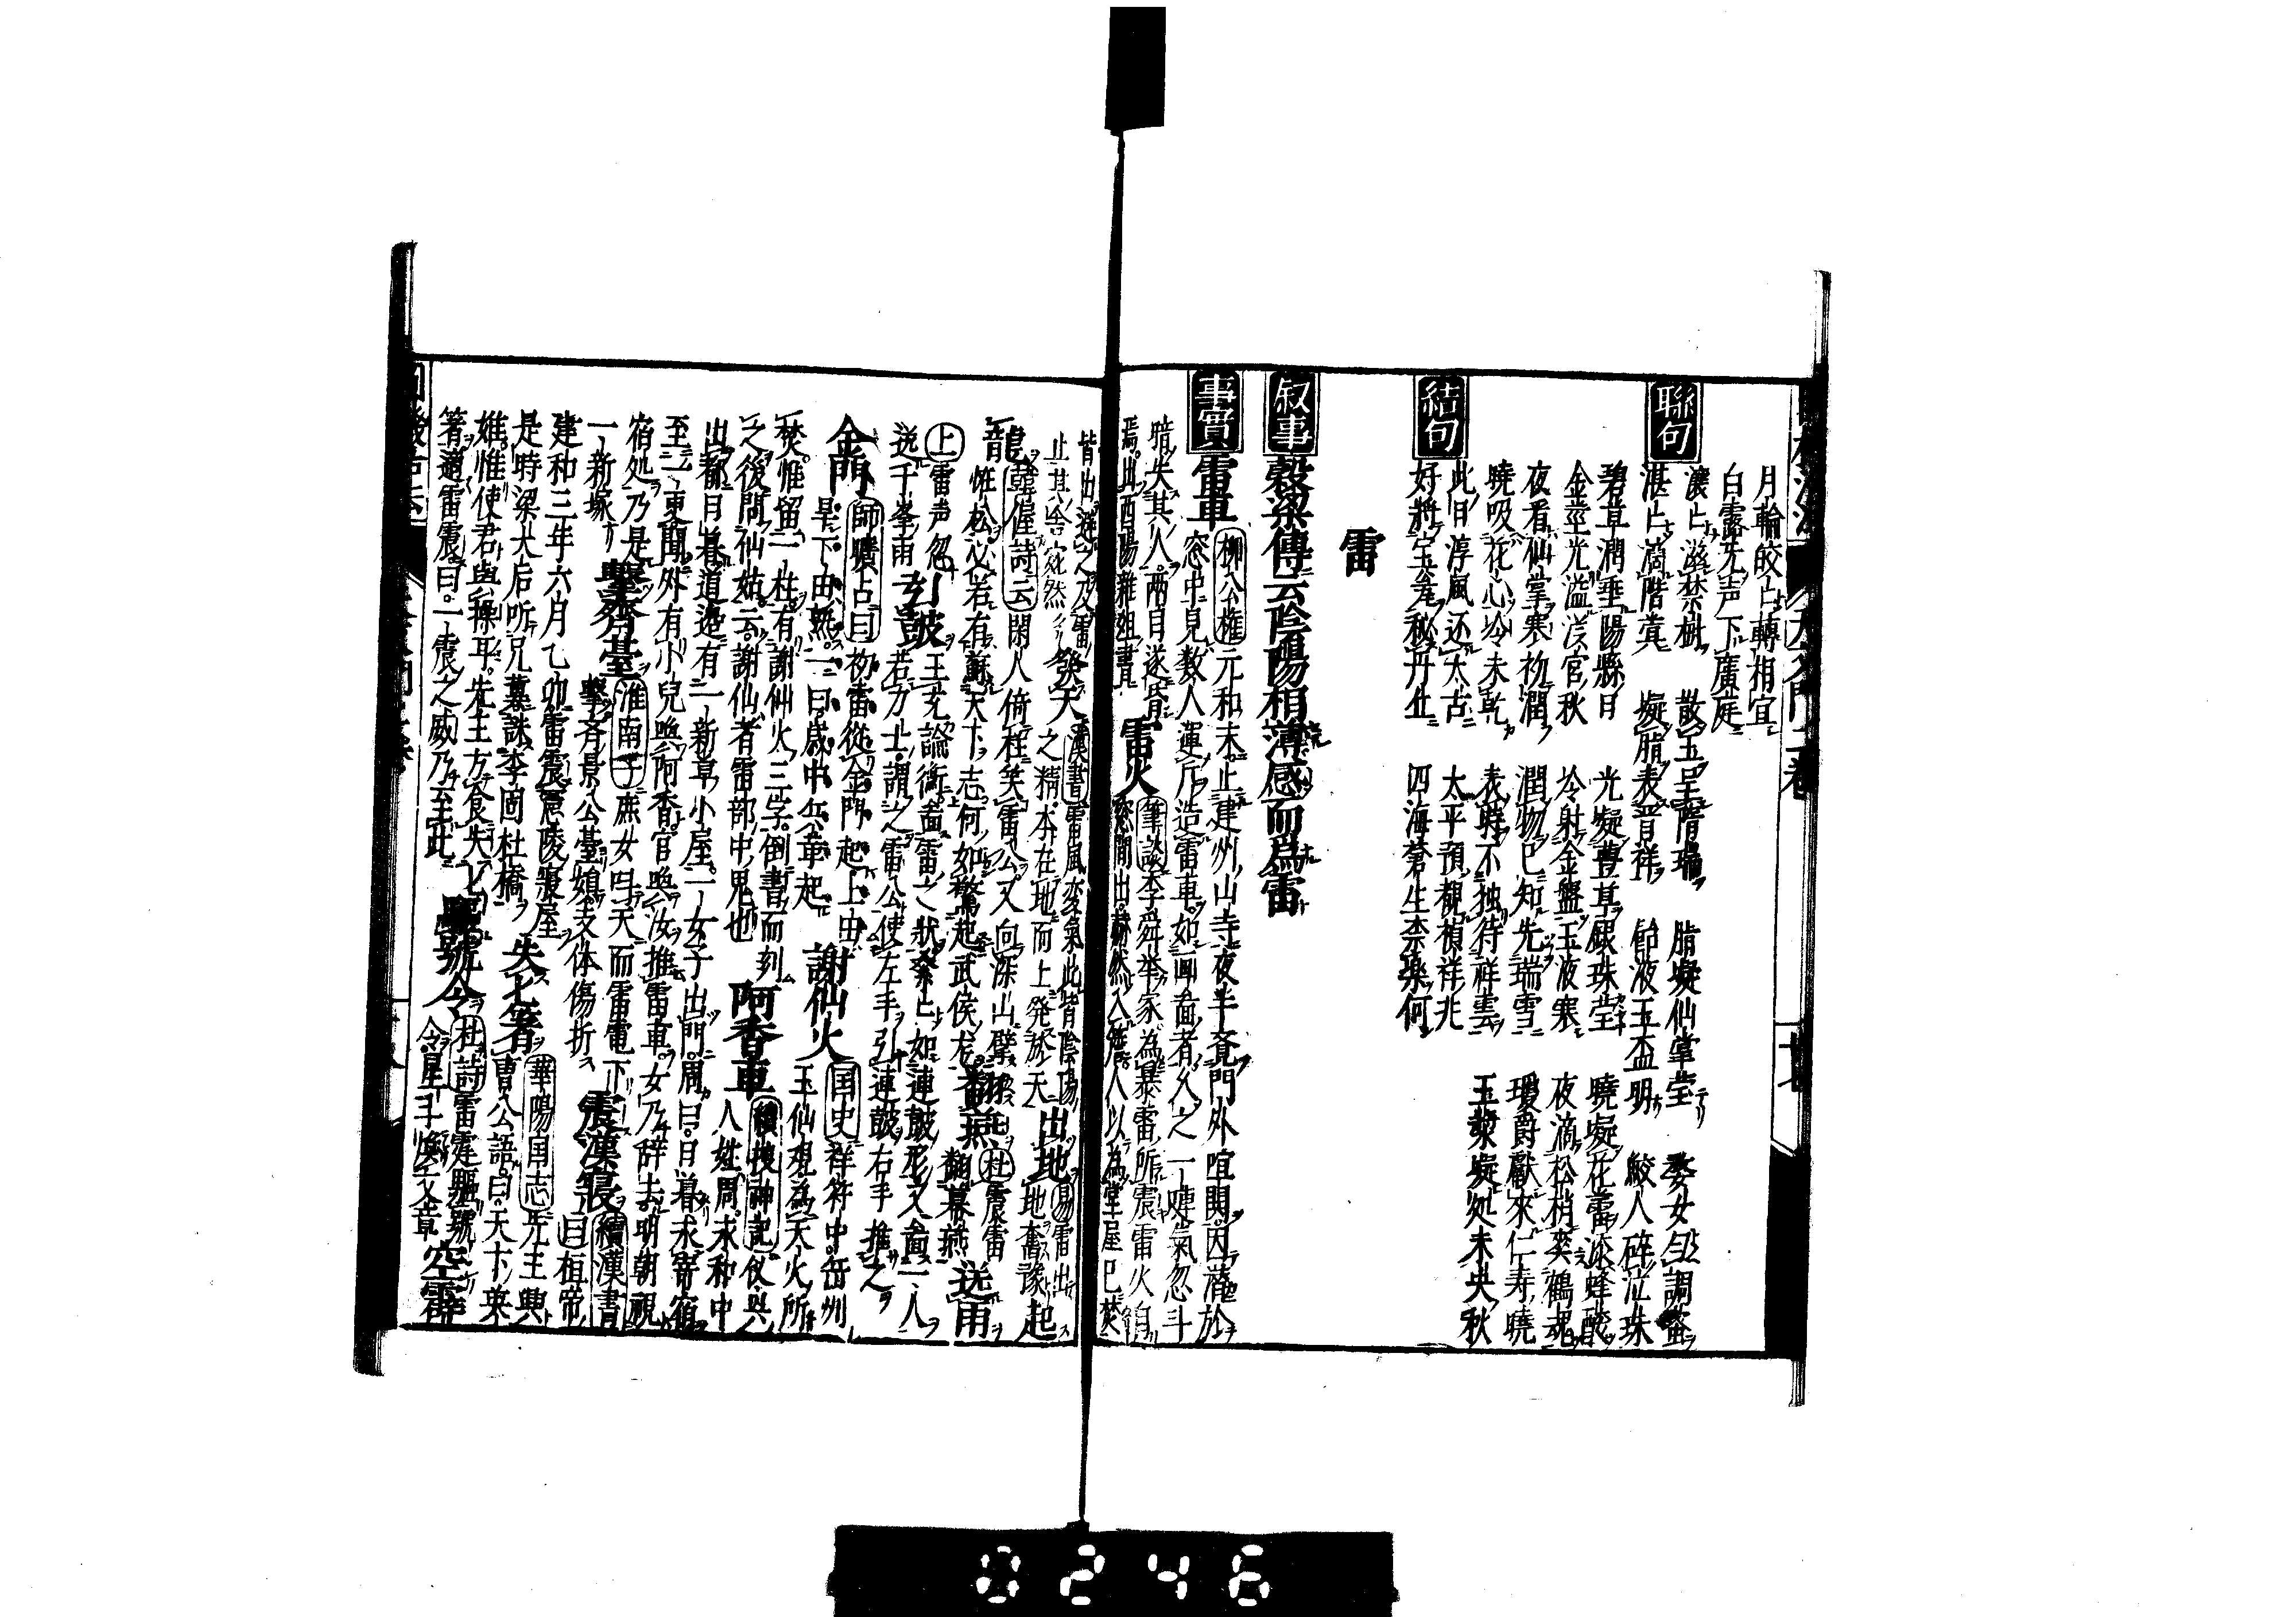 月輪皎々轉相宜
白露无声下廣庭
聯句
濃々滋禁樹 散玉呈隋瑞 脂凝仙掌瑩 婺女匀調鉛
湛々滴階蓂 凝脂表晋祥 餘液玉盃明 鮫人碎泣珠
碧草潤垂陽縣日 光凝豊草銀珠瑩 曉凝花蕾添蜂醆
金莖光溢漢宮秋 冷射金盤玉液寒 夜滴松梢爽鶴魂
結句
夜看仙掌寒初潤 潤物已知先瑞雪 瓊爵獻來仁寿曉
曉吸花心冷未乾 表時不独待祥雲 玉漿凝処未央秋
此日淳風还太古 太平預覩禎祥兆
好將宝瓮秘丹丘 四海蒼生柰樂何
雷
叙事
穀梁傳云陰陽相薄感而爲雷
事實
雷車 柳公権 元和末止建州山寺夜半斉門外喧鬧因潜於
窓中見数人運斤造雷車如啚畵者久之一嚏氣忽斗
暗失其人両目遂昏 雷火 筆談 李舜挙家為暴雷所震雷火自
窓間出赫然入簷人以為堂屋已焚
皆出避之及雷
止其舎宛然 發天 漢書 雷風変氣此皆陰陽
之精本在地而上発於天 出地 易 雷出
地奮豫 起
龍 韓偓詩云 閑人倚柱笑雷公又向深山劈
惟松必若有蘇天下志何如驚起武侯龙 翻燕 杜 震雷
翻幕燕 送雨
上 雷声忽
送千峯雨 玄鼓 王充論衡 畵雷之狀纍々如連鼓形又畵一人
若力士謂之雷公使左手引連鼓右手推之
金門 師曠占曰 初雷從金門起上由
旱下由熟一曰歳中兵革起 謝仙火 国史 祥符中岳州
玉仙觀為天火所
焚惟留一柱有謝仙火三字倒書而刻
之後問仙姑云謝仙者雷部中鬼也 阿香車 續搜神記 仪兴
人姓周求和中
出都日暮道邉有一新草小屋一女子出門周曰日暮求寄宿
至一更聞外有小兒喚阿香官喚汝推雷車女乃辞去明朝視
宿処乃是
一新塚 擊齊臺 淮南子 庶女叫天而雷電下
擊斉景公臺媍支体傷折 震漢寝 續漢書
曰桓帝
建和三年六月乙卯雷震憲陵寝屋
是時梁大后听兄冀誅李固杜橋 失匕箸 華陽国志 先主與
曹公語曰天下英
雄惟使君與操耳先主方食失匕
箸適雷震曰一震之威乃至此 驅號令 杜詩 雷霆驅號
令星斗焕文章 空霹